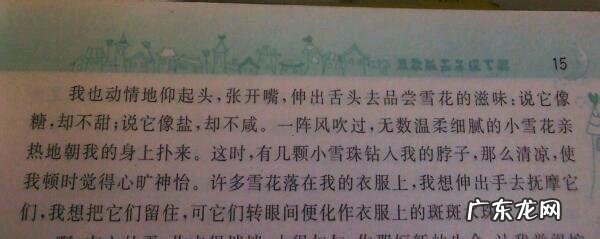 15
我也动情地仰起头，张开嘴，伸出舌头去品尝雪花的滋味：说它像
糖，却不甜；说它像盐，却不咸。一阵风吹过，无数温柔细腻的小雪花亲
热地朝我的身上扑来。这时，有几颗小雪珠钻入我的脖子，那么清凉，使
我顿时觉得心旷神怡。许多雪花落在我的衣服上，我想伸出手去抚摩它
们，我想把它们留住，可它们转眼间便化作衣服上的斑斑
广东龙网